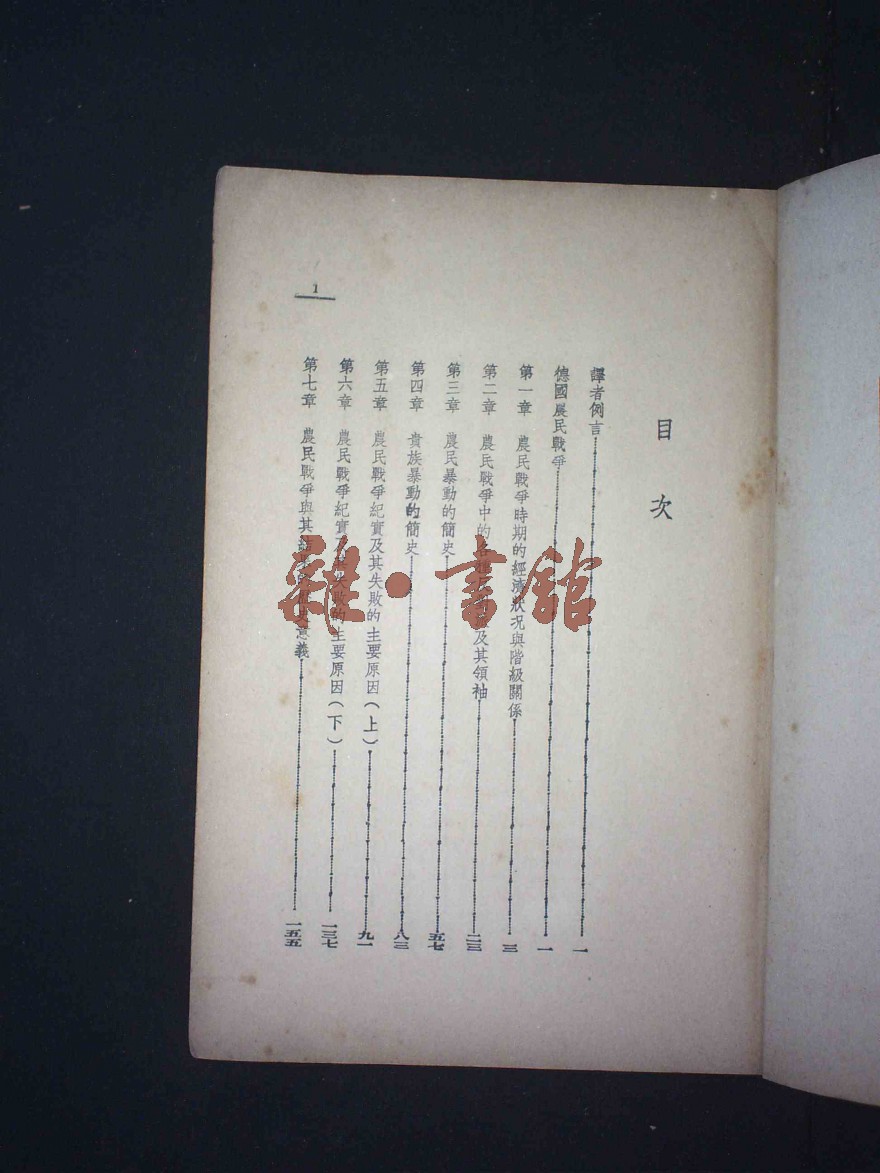 目次
譯者例言 一
德國農民戰爭 一
第一章 農民戰爭時期的經濟狀況與階級關係 三
第二章 農民戰爭中的各 及其領袖 二三
第三章 農民暴動的簡史 五七
第四章 貴族暴動的簡史 八三
第五章 農民戰爭紀實及其失敗的主要原因(上) 九一
第六章 農民戰爭紀實及其失敗的主要原因(下) 一三七
第七章 農民戰爭與其結 史意義 一五五
1
雜·書館